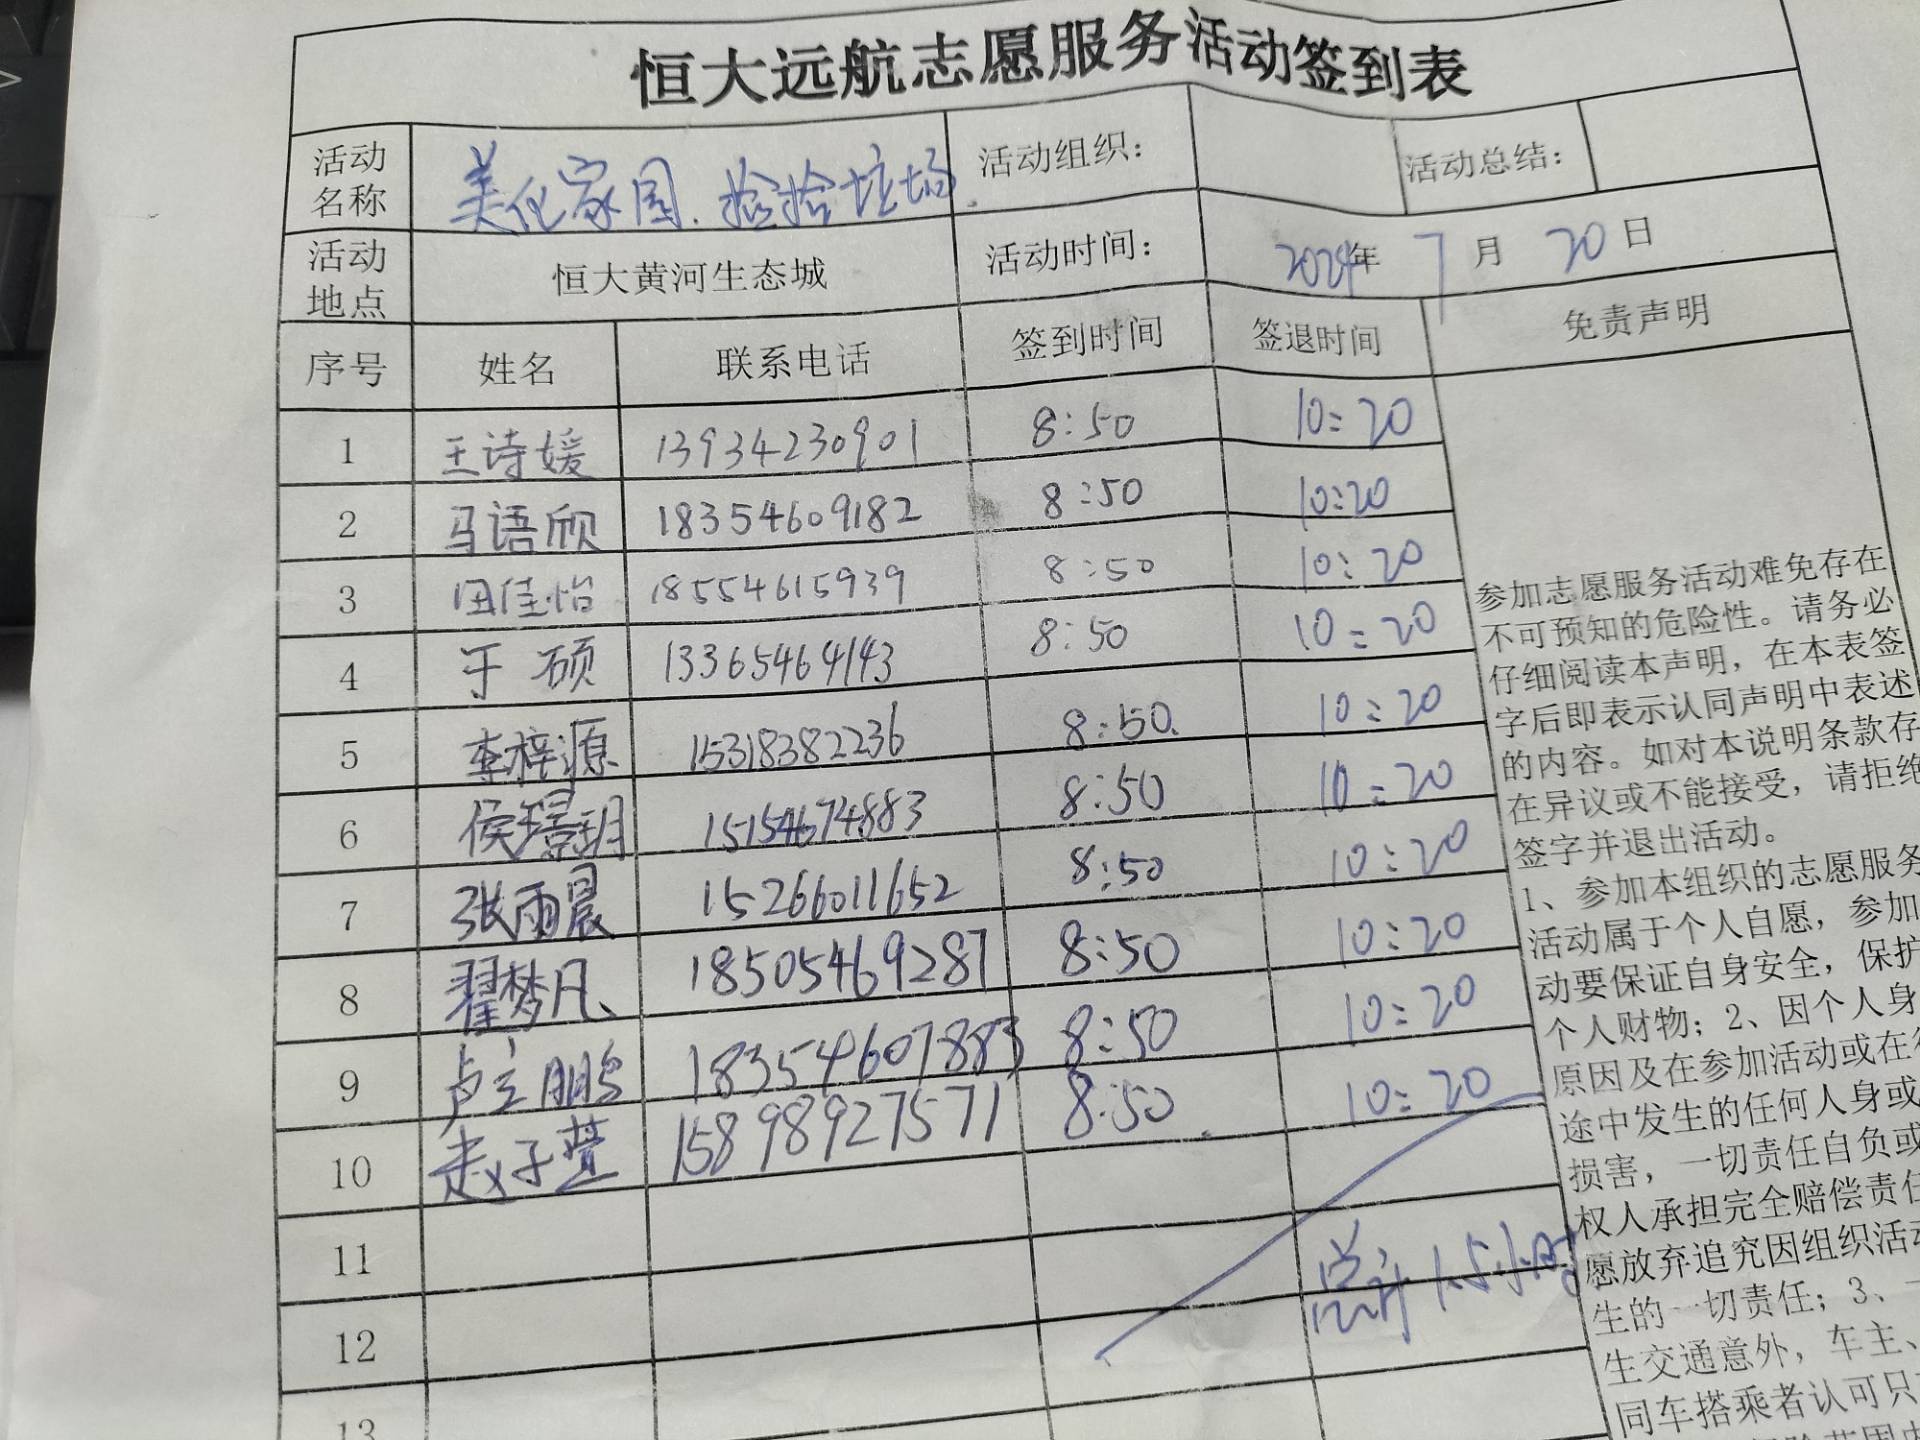 恒大远航志愿服务活动签到表
活动名称 美化家园.捡拾垃圾. 活动组织： 活动总结：
活动地点 恒大黄河生态城 活动时间： 2024年 7月 20日
序号 姓名 联系电话 签到时间 签退时间 免责声明
1 王诗媛 13934230901 8:50 10:20
2 马语欣 18354609182 8:50 10:20
3 田佳怡 18554615939 8:50 10:20
4 于硕 13365464143 8:50 10:20
5 李梓源 15318382236 8:50. 10:20
6 侯璟玥 15154674883 8:50 10:20
7 张雨晨 15266011652 8:50 10:20
8 翟梦凡 18505469287 8:50 10:20
9 卢立鹏 18354607883 8:50 10:20
10 赵子萱 15898927571 8:50. 10:20
11
总计 1.5小时
12
13
参加志愿服务活动难免存在
不可预知的危险性。请务必
仔细阅读本声明，在本表签
字后即表示认同声明中表述
的内容。如对本说明条款存
在异议或不能接受，请拒绝
签字并退出活动。
1、参加本组织的志愿服务
活动属于个人自愿，参加
动要保证自身安全，保护
个人财物；2、因个人身
原因及在参加活动或在往
途中发生的任何人身或
损害，一切责任自负或
权人承担完全赔偿责任
愿放弃追究因组织活动
生的一切责任；3、
生交通意外，车主、
同车搭乘者认可只